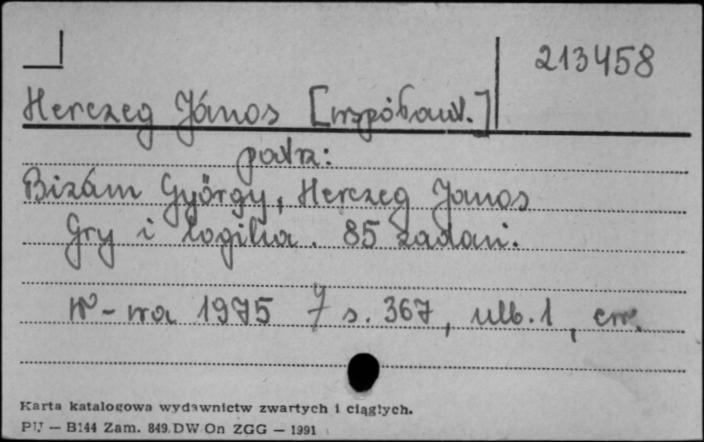 213458
Herczeg János [współaut.]
patrz:
Bizám György, Herczeg Janos
Gry i logika. 85 zadań.
W-wa 1975 s. 367, nlb. 1, err.
Karta katalogowa wydawnictw zwartych i ciągłych.
PU — B144 Zam. 849. DW On ZGG — 1991